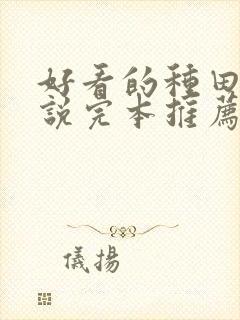 好看的種田
說完本推薦
儀揚